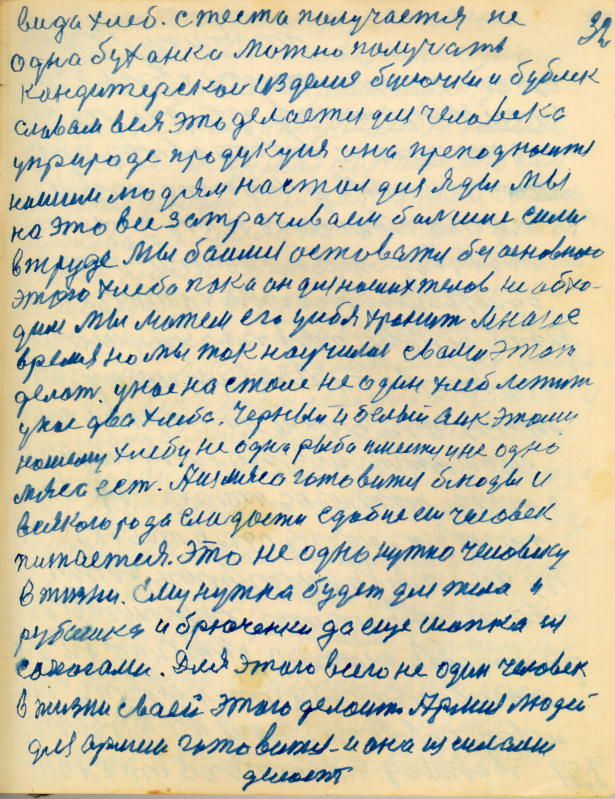 32
вида хлеб. с теста получается не
одна буханка можно получать
кондитерской изделия булочки и бублик
словам вся это делается для человека
у природе продукция она преподносится
нашим людям на стол для яды мы
на это все затрачиваем большие силы
в труде Мы боимся остоватся без основного
этого хлеба пока он для наших телов не обхо-
дим Мы можем его у себя хранит многое
время но мы так научились с вами этом
делат. у нас на столе не один хлеб лежит
у нас два хлеба, черный и белый а и к этому
нашему хлебу не одна рыба имеется и не одно
мясо ест. А из мяса готовится блюды и
всякого рода сладости сдобнеем человек
питается. Это не одно нужно человеку
в жизни. Ему нужна будет для тела и
рубашка и брюченки да еще шапка и
сапогами. Для этого всего не один человек
в жизни сваей этого делоит. Армия людей
для армии готовится и она и силами
делает